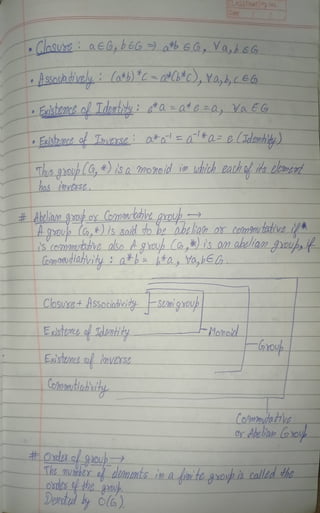 • Closure : a∈G, b∈G ⇒ a*b ∈G, ∀a,b∈G
• Associatively : (a*b)*c = a*(b*c), ∀a,b,c ∈G
• Existence of Identity : e*a = a*e = a, ∀a∈G
• Existence of Inverse : a*a⁻¹ = a⁻¹*a = e (Identity)
Thus group (G,*) is a monoid in which each of its element
has inverse.
# Abelian group or Commutative group →
A group (G,*) is said to be abelian or commutative if *
is commutative also A group (G,*) is an abelian group, if
Commutiativity : a*b = b*a, ∀a,b∈G.
Closure + Associativity
semigroup
Existence of Identity
Monoid
Group
Existence of inverse
Commutiativity
Commutative
or Abelian Group
# Order of group →
The number of elements in a finite group is called the
order of the group.
Denoted by O(G)